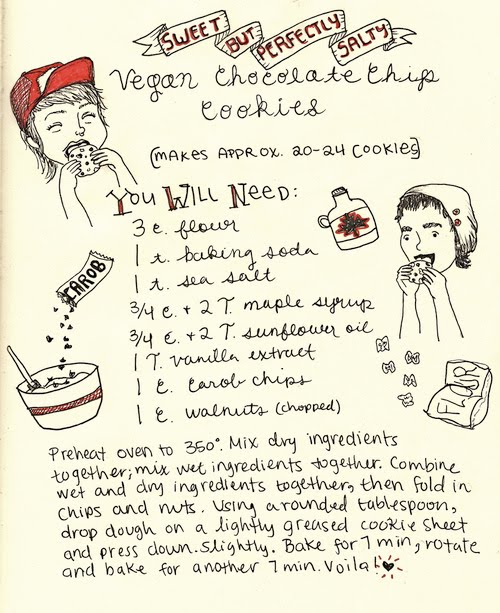 SWEET BUT PERFECTLY SALTY
Vegan Chocolate Chip
Cookies
(MAKES APPROX. 20-24 COOKIES)
You Will Need:
3 c. flour
1 t. baking soda
1 t. sea salt
3/4 c. + 2 T. maple syrup
3/4 c. + 2 T. sunflower oil
1 T. vanilla extract
1 c. carob chips
1 c. walnuts (chopped)
CAROB
Preheat oven to 350°. Mix dry ingredients
together; mix wet ingredients together. Combine
wet and dry ingredients together, then fold in
chips and nuts. Using a rounded tablespoon,
drop dough on a lightly greased cookie sheet
and press down slightly. Bake for 7 min, rotate
and bake for another 7 min. Voila!